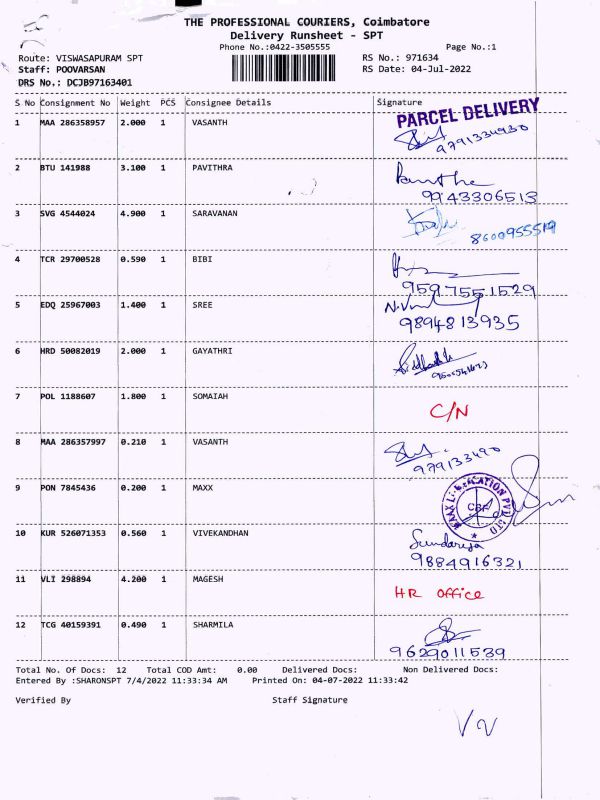 THE PROFESSIONAL COURIERS, Coimbatore
Delivery Runsheet - SPT
Phone No.:0422-3505555 Page No.:1
Route: VISWASAPURAM SPT RS No.: 971634
Staff: POOVARSAN RS Date: 04-Jul-2022
DRS No.: DCJB97163401
S No Consignment No Weight PCS Consignee Details Signature
PARCEL DELIVERY
1 MAA 286358957 2.000 1 VASANTH
9791334930
2 BTU 141988 3.100 1 PAVITHRA
9943306513
3 SVG 4544024 4.900 1 SARAVANAN
8600955519
4 TCR 29700528 0.590 1 BIBI
9597551529
5 EDQ 25967003 1.400 1 SREE
9894813935
6 HRD 50082019 2.000 1 GAYATHRI
7 POL 1188607 1.800 1 SOMAIAH
C/N
8 MAA 286357997 0.210 1 VASANTH
979133490
9 PON 7845436 0.200 1 MAXX
CBE
10 KUR 526071353 0.560 1 VIVEKANDHAN
9884916321
11 VLI 298894 4.200 1 MAGESH
HR office
12 TCG 40159391 0.490 1 SHARMILA
9629011539
Total No. Of Docs: 12 Total COD Amt: 0.00 Delivered Docs: Non Delivered Docs:
Entered By :SHARONSPT 7/4/2022 11:33:34 AM Printed On: 04-07-2022 11:33:42
Verified By Staff Signature